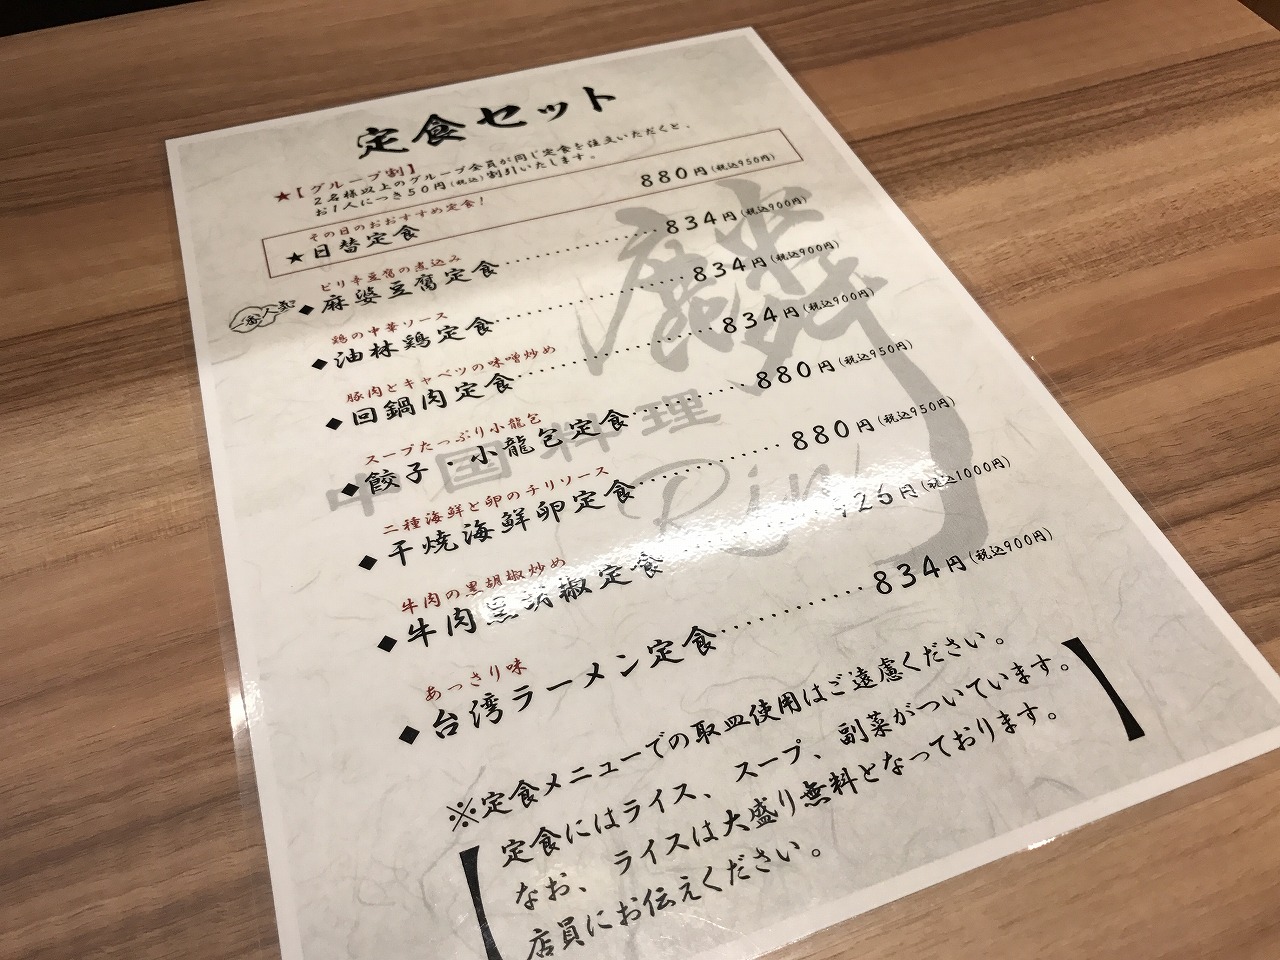 定食セット
★【グループ割】
2名様以上のグループ全員が同じ定食を注文いただくと、
お1人につき50円(税込)割引いたします。
その日のおおすすめ定食!
★日替定食 880円(税込950円)
ピリ辛豆腐の煮込み
一番人気
◆麻婆豆腐定食 834円(税込900円)
鶏の中華ソース
◆油林鶏定食 834円(税込900円)
豚肉とキャベツの味噌炒め
◆回鍋肉定食 834円(税込900円)
スープたっぷり小龍包
◆餃子・小龍包定食 880円(税込950円)
二種海鮮と卵のチリソース
◆干焼海鮮卵定食 880円(税込950円)
牛肉の黒胡椒炒め
◆牛肉黒胡椒定食 926円(税込1000円)
あっさり味
◆台湾ラーメン定食 834円(税込900円)
※定食メニューでの取皿使用はご遠慮ください。
【定食にはライス、スープ、副菜がついています。
なお、ライスは大盛り無料となっております。
店員にお伝えください。】
中国料理
Rin